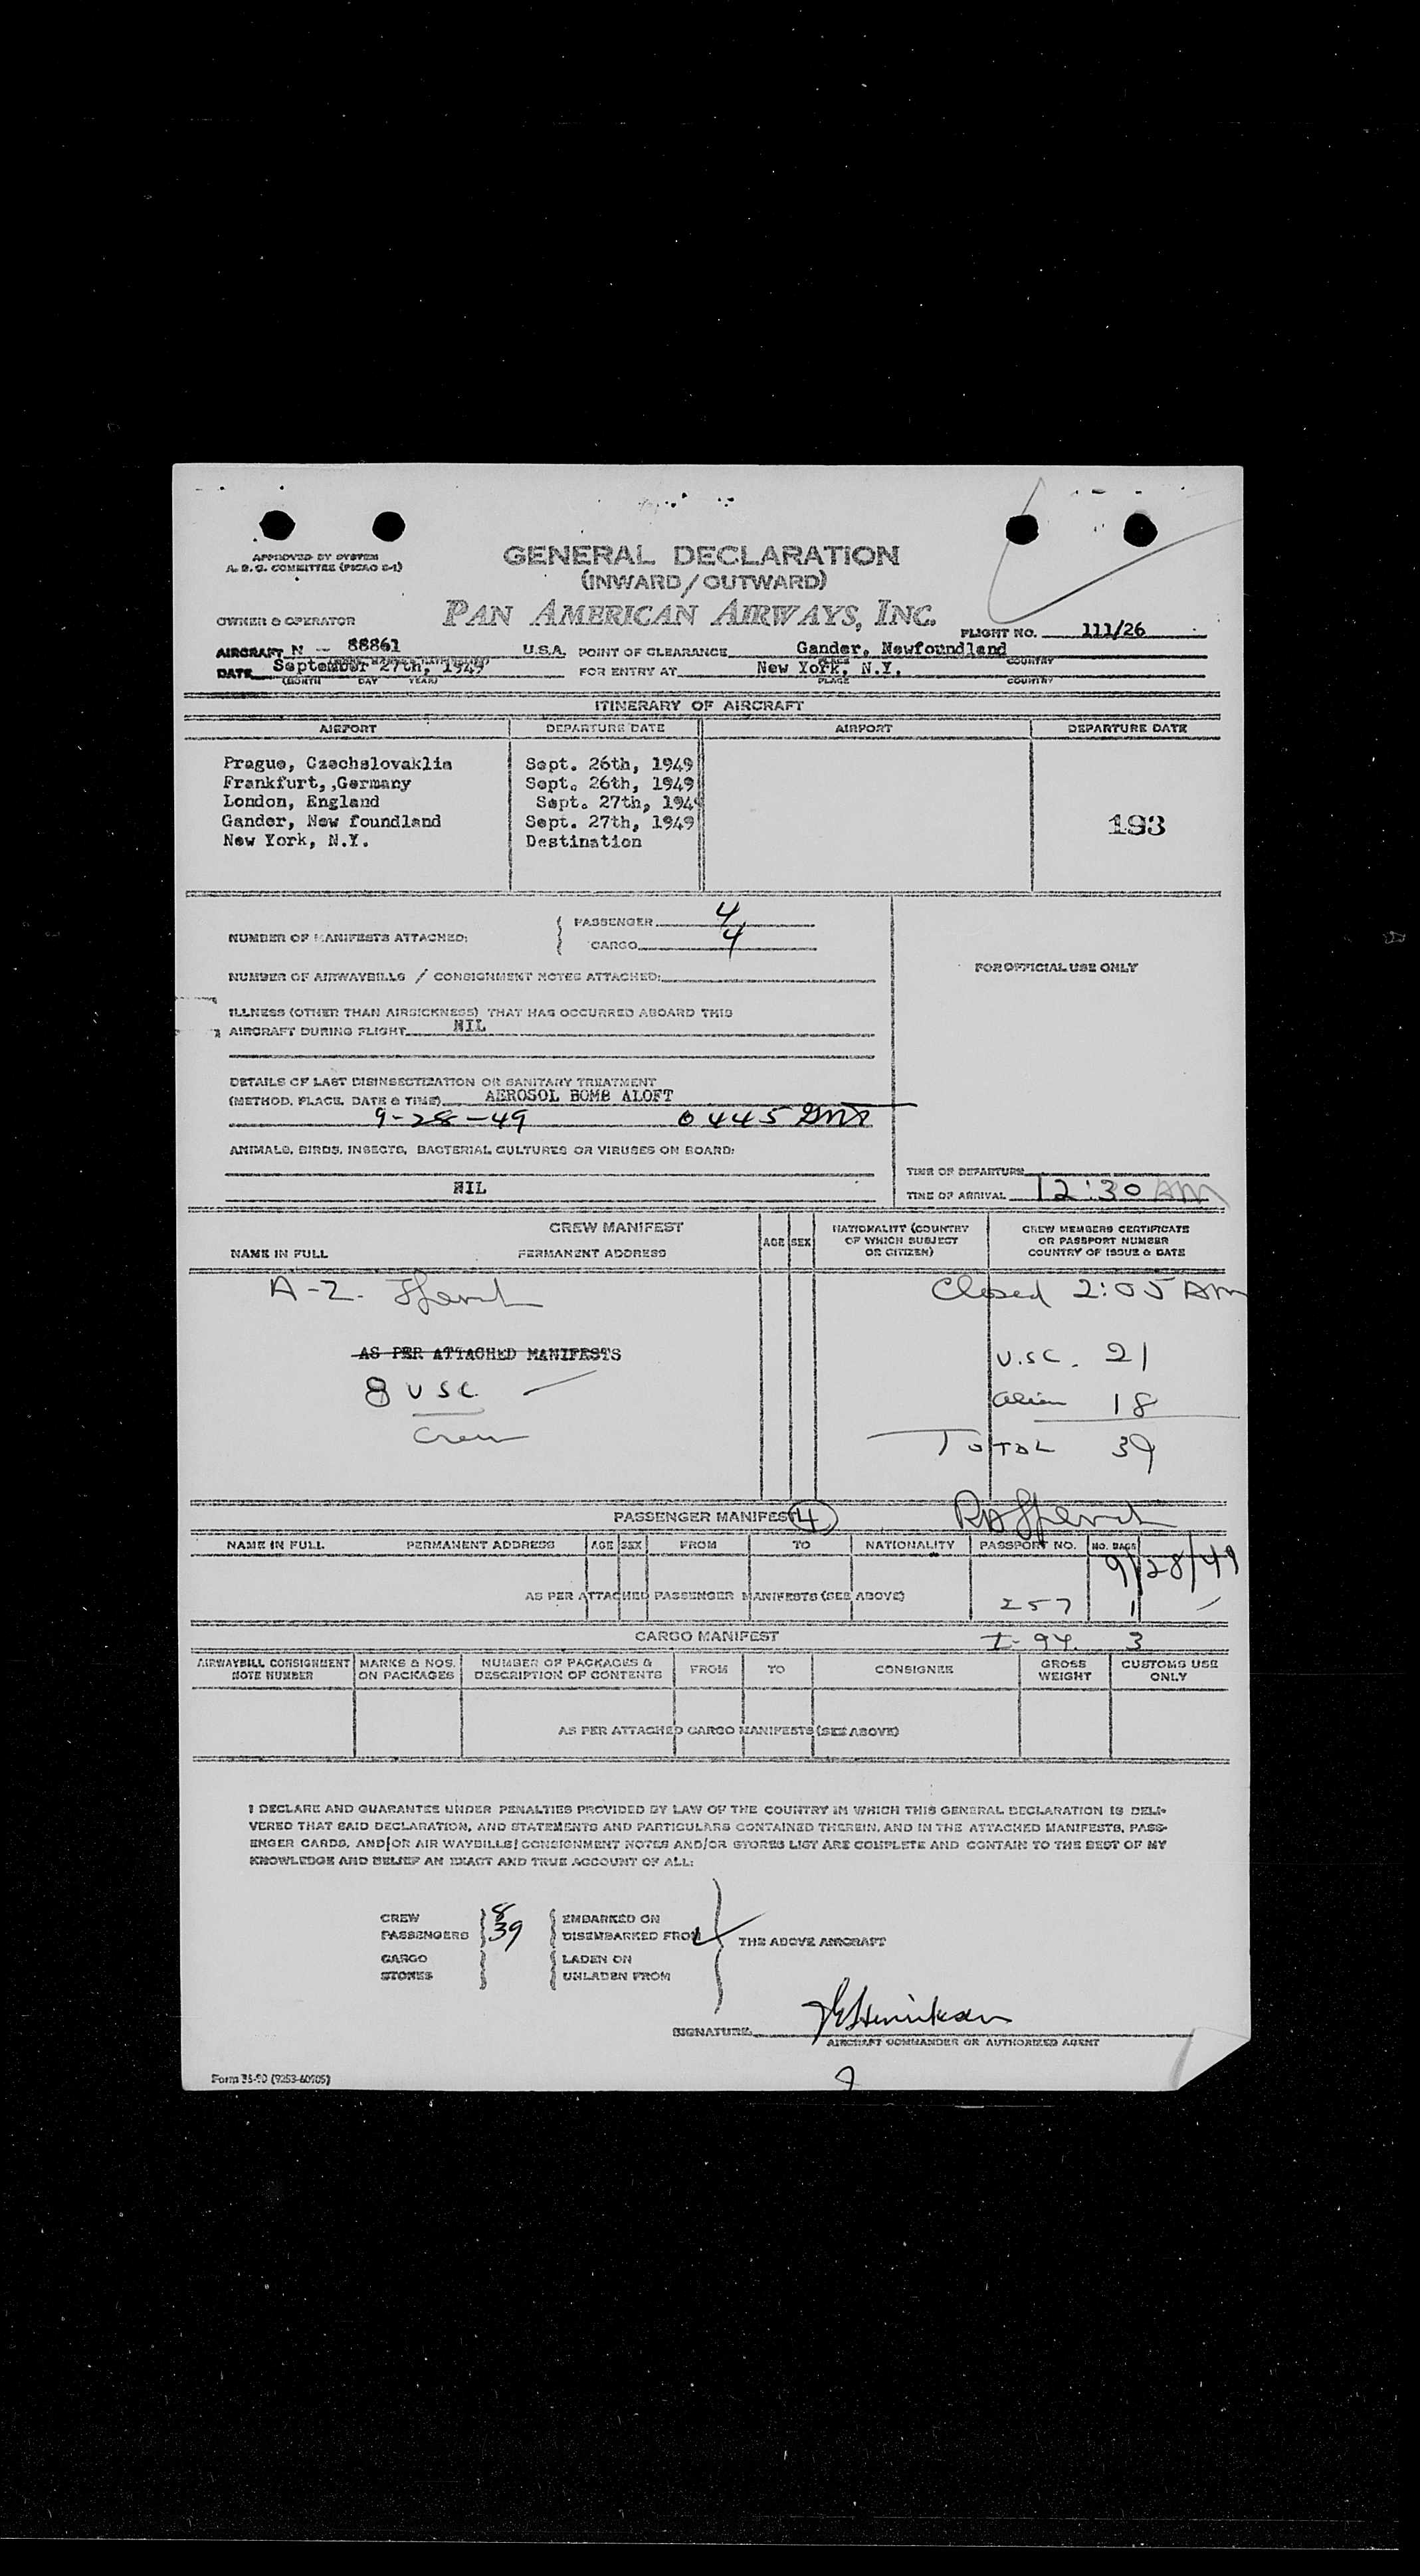 APPROVED BY SYSTEM
A. B. C. COMMITTEE (PICAO S-1)
GENERAL DECLARATION
(INWARD/OUTWARD)
OWNER & OPERATOR
PAN AMERICAN AIRWAYS, INC.
FLIGHT NO. 111/26
AIRCRAFT N -- 88861 U.S.A. POINT OF CLEARANCE Gander, Newfoundland
PLACE COUNTRY
DATE September 27th, 1949 FOR ENTRY AT New York, N.Y.
(MONTH DAY YEAR) PLACE COUNTRY
ITINERARY OF AIRCRAFT
AIRPORT DEPARTURE DATE AIRPORT DEPARTURE DATE
Prague, Czechslovaklia Sept. 26th, 1949
Frankfurt,,Germany Sept. 26th, 1949
London, England Sept. 27th, 1949
Gander, New foundland Sept. 27th, 1949
193
New York, N.Y. Destination
NUMBER OF MANIFESTS ATTACHED:
PASSENGER 4
CARGO 4
NUMBER OF AIRWAYBILLS / CONSIGNMENT NOTES ATTACHED:
FOR OFFICIAL USE ONLY
ILLNESS (OTHER THAN AIRSICKNESS) THAT HAS OCCURRED ABOARD THIS
AIRCRAFT DURING FLIGHT NIL
DETAILS OF LAST DISINSECTIZATION OR SANITARY TREATMENT
(METHOD, PLACE, DATE & TIME) AEROSOL BOMB ALOFT
9-28-49 0445 GMT
ANIMALS, BIRDS, INSECTS, BACTERIAL CULTURES OR VIRUSES ON BOARD:
NIL
TIME OF DEPARTURE
TIME OF ARRIVAL 12:30 AM
CREW MANIFEST
NAME IN FULL PERMANENT ADDRESS
AGE SEX
NATIONALITY (COUNTRY
OF WHICH SUBJECT
OR CITIZEN)
CREW MEMBERS CERTIFICATE
OR PASSPORT NUMBER
COUNTRY OF ISSUE & DATE
A-Z.
Closed 2:05 AM
AS PER ATTACHED MANIFESTS
U.SC. 21
8 USC
alien 18
Crew
TOTAL 39
PASSENGER MANIFEST 4
NAME IN FULL PERMANENT ADDRESS AGE SEX FROM TO NATIONALITY PASSPORT NO. NO. BAGS
9/28/49
AS PER ATTACHED PASSENGER MANIFESTS (SEE ABOVE)
257 1
CARGO MANIFEST
I-94. 3
AIRWAYBILL CONSIGNMENT
NOTE NUMBER
MARKS & NOS.
ON PACKAGES
NUMBER OF PACKAGES &
DESCRIPTION OF CONTENTS
FROM TO CONSIGNEE
GROSS
WEIGHT
CUSTOMS USE
ONLY
AS PER ATTACHED CARGO MANIFESTS (SEE ABOVE)
I DECLARE AND GUARANTEE UNDER PENALTIES PROVIDED BY LAW OF THE COUNTRY IN WHICH THIS GENERAL DECLARATION IS DELI-
VERED THAT SAID DECLARATION, AND STATEMENTS AND PARTICULARS CONTAINED THEREIN, AND IN THE ATTACHED MANIFESTS, PASS-
ENGER CARDS, AND/OR AIR WAYBILLS/CONSIGNMENT NOTES AND/OR STORES LIST ARE COMPLETE AND CONTAIN TO THE BEST OF MY
KNOWLEDGE AND BELIEF AN EXACT AND TRUE ACCOUNT OF ALL:
CREW 8 EMBARKED ON
PASSENGERS 39 DISEMBARKED FROM
THE ABOVE AIRCRAFT
CARGO LADEN ON
STORES UNLADEN FROM
SIGNATURE
AIRCRAFT COMMANDER OR AUTHORIZED AGENT
Form 35-90 (9253-60505)